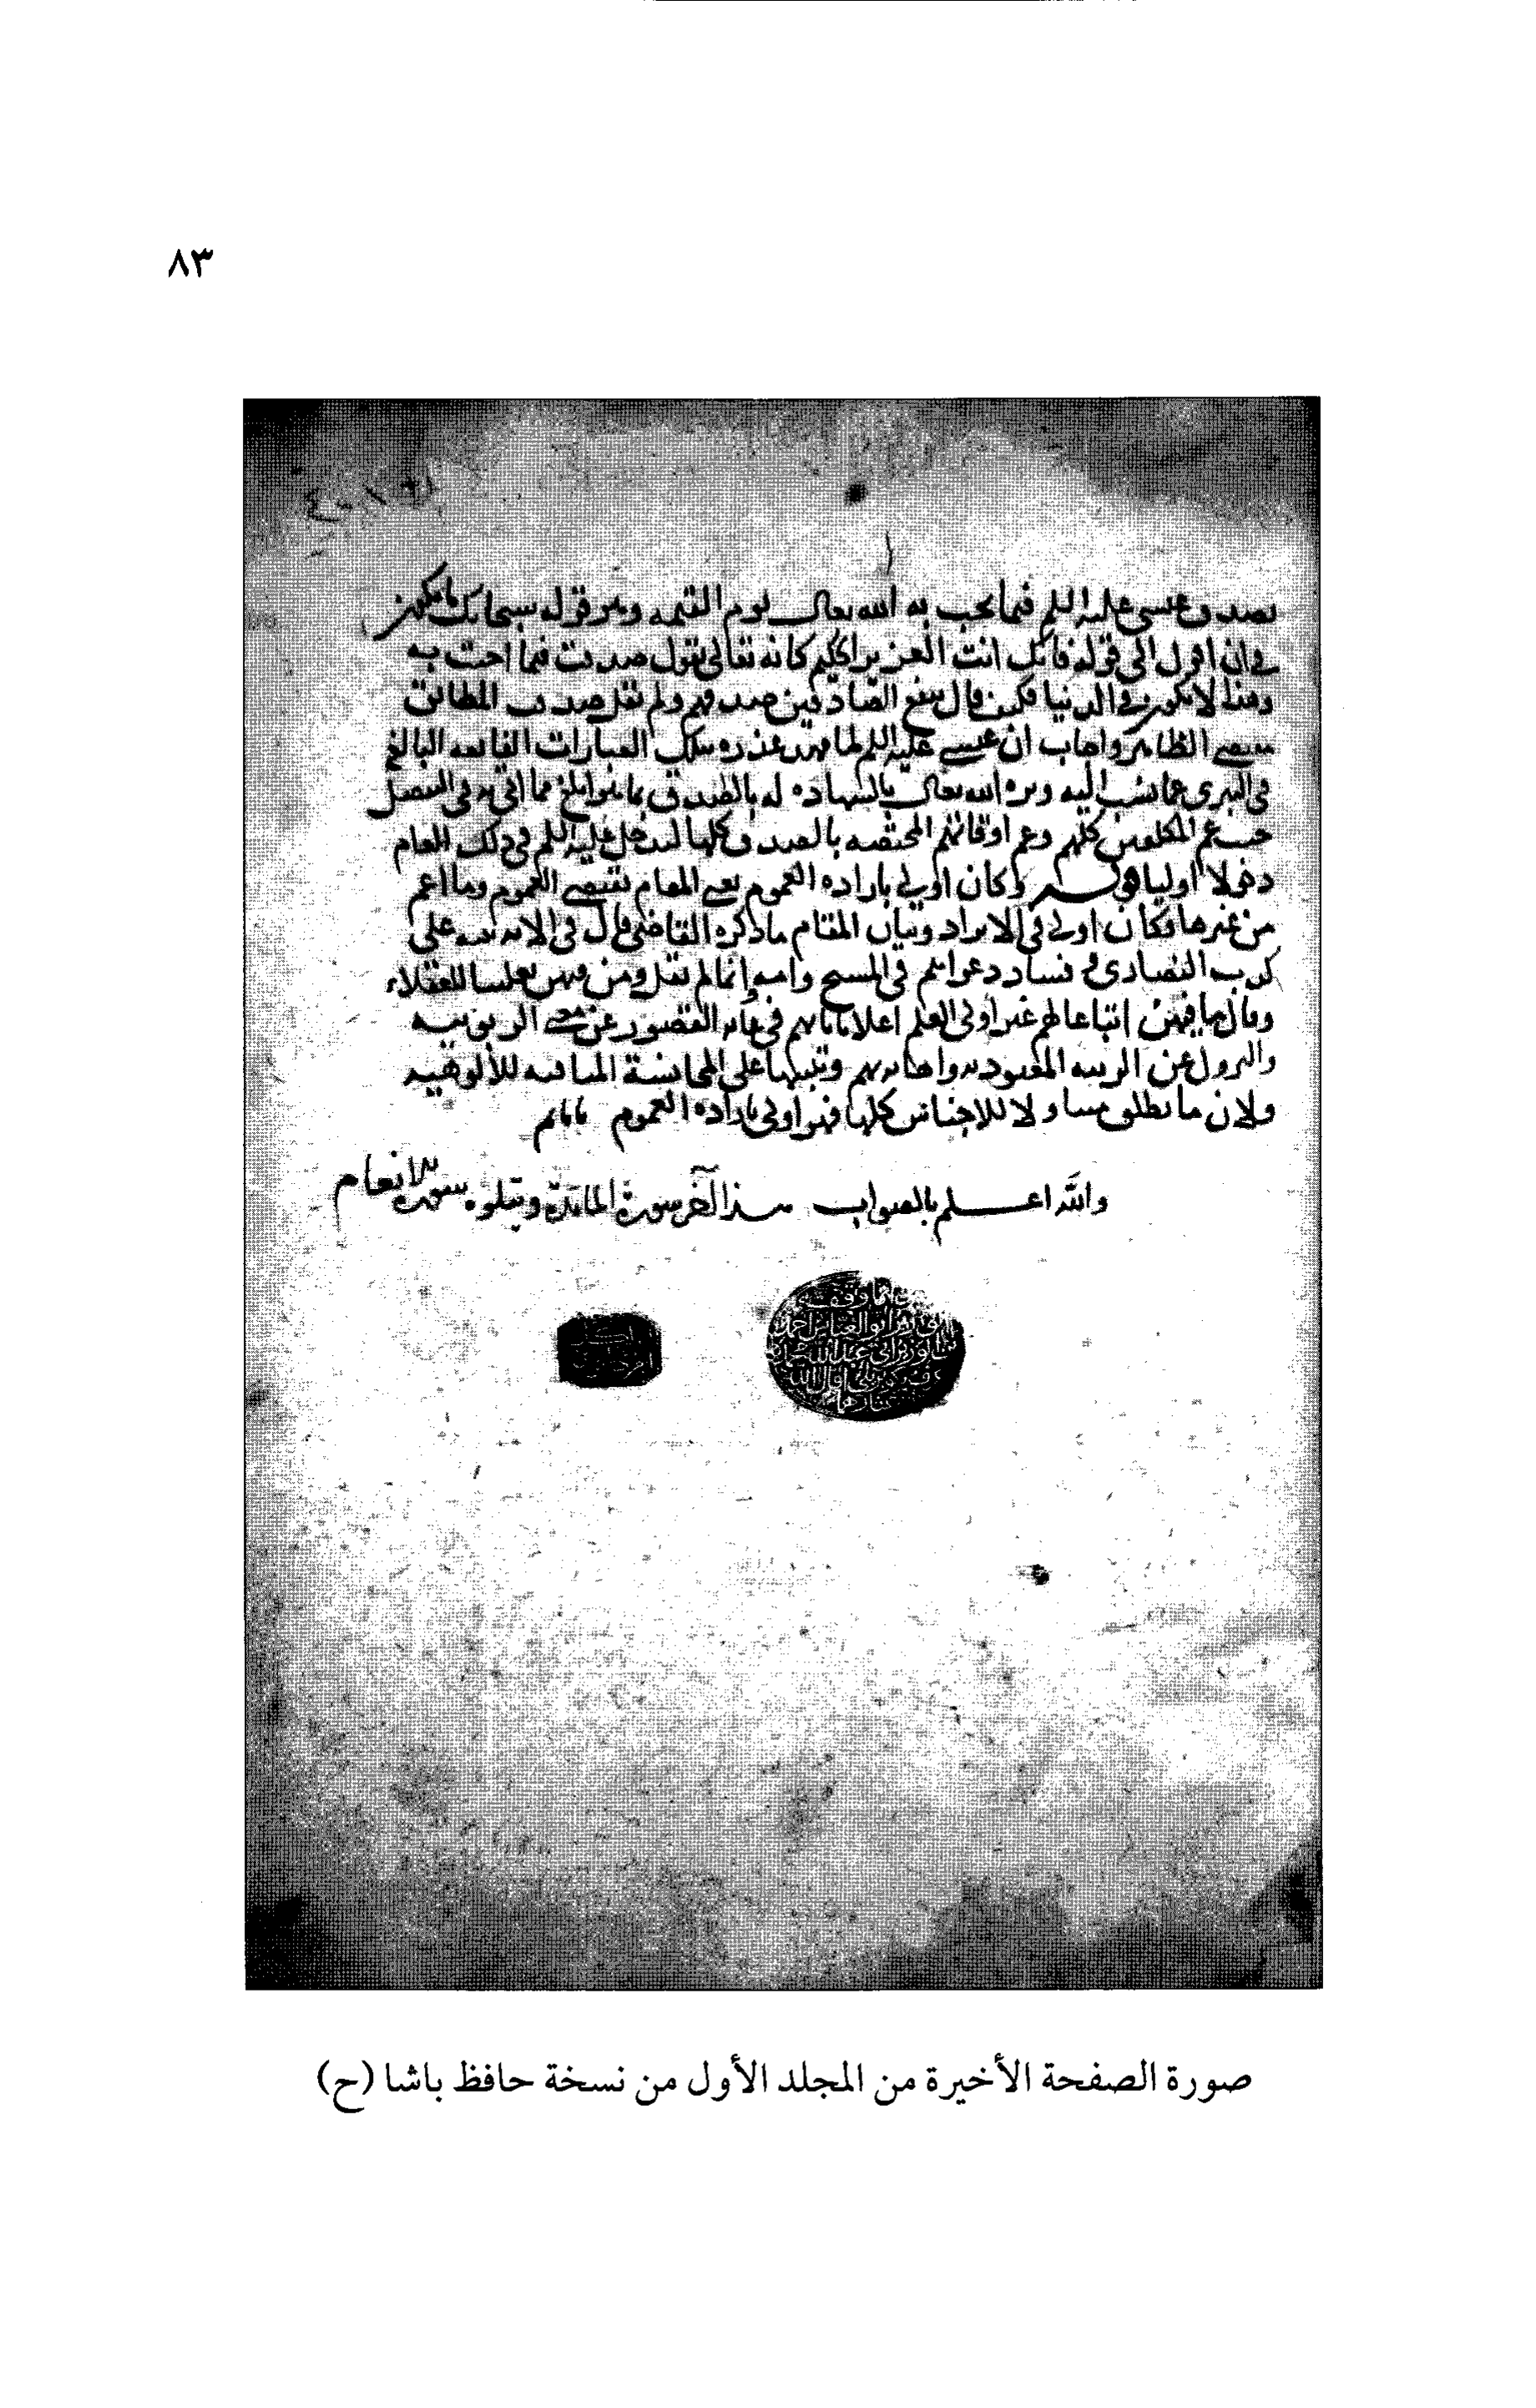 ٨٣
بصدق عيسى عليه السلم فيما يجيب به الله تعالى يوم القيمة وهو قوله سبحانك ما يكون
لي ان اقول الى قوله فانك انت العزيز الحكيم كانه تعالى يقول صدقت فيما اجبت به
وهذا لا يكون في الدنيا فكيف قال ينفع الصادقين صدقهم ولم يقل صدقت المطابق
الظاهر واجاب ان عيسى عليه السلم لما مهد عذره بتلك العبارات الفايقه البالغ
في التبري عما نسب اليه وبره الله تعالى بالشهاده له بالصدق بما هو ابلغ مما اتى به في التنصل
حيث عم المكلفين كلهم وعم اوقاتهم المختصه بالصدق كلها ليدخل عليه السلم في ذلك العام
دخولا اوليا قوله وكان اولى باراده العموم يعني المقام يقتضي العموم وما اعم
من غيرها فكان اولى في الايراد وبيان المقام ما ذكره القاضي قال في الايه تنبيه على
كذب النصارى وفساد دعواهم في المسيح وامه وانما لم يقل ومن فيهن تغليبا للعقلاء
وقال ما فيهن اتباعا لهم غير اولى العلم اعلاما بانهم في غايه القصور عن معنى الربوبيه
والنزول عن الرتبه المعبوديه واهانه بهم وتنبيها على المجانسة المنافيه للألوهيه
ولان ما يطلق متناولا للاجناس كلها فهو اولى باراده العموم
والله اعلم بالصواب هذا آخر سورة المائدة ويتلوه سورة الانعام
صورة الصفحة الأخيرة من المجلد الأول من نسخة حافظ باشا (ح)